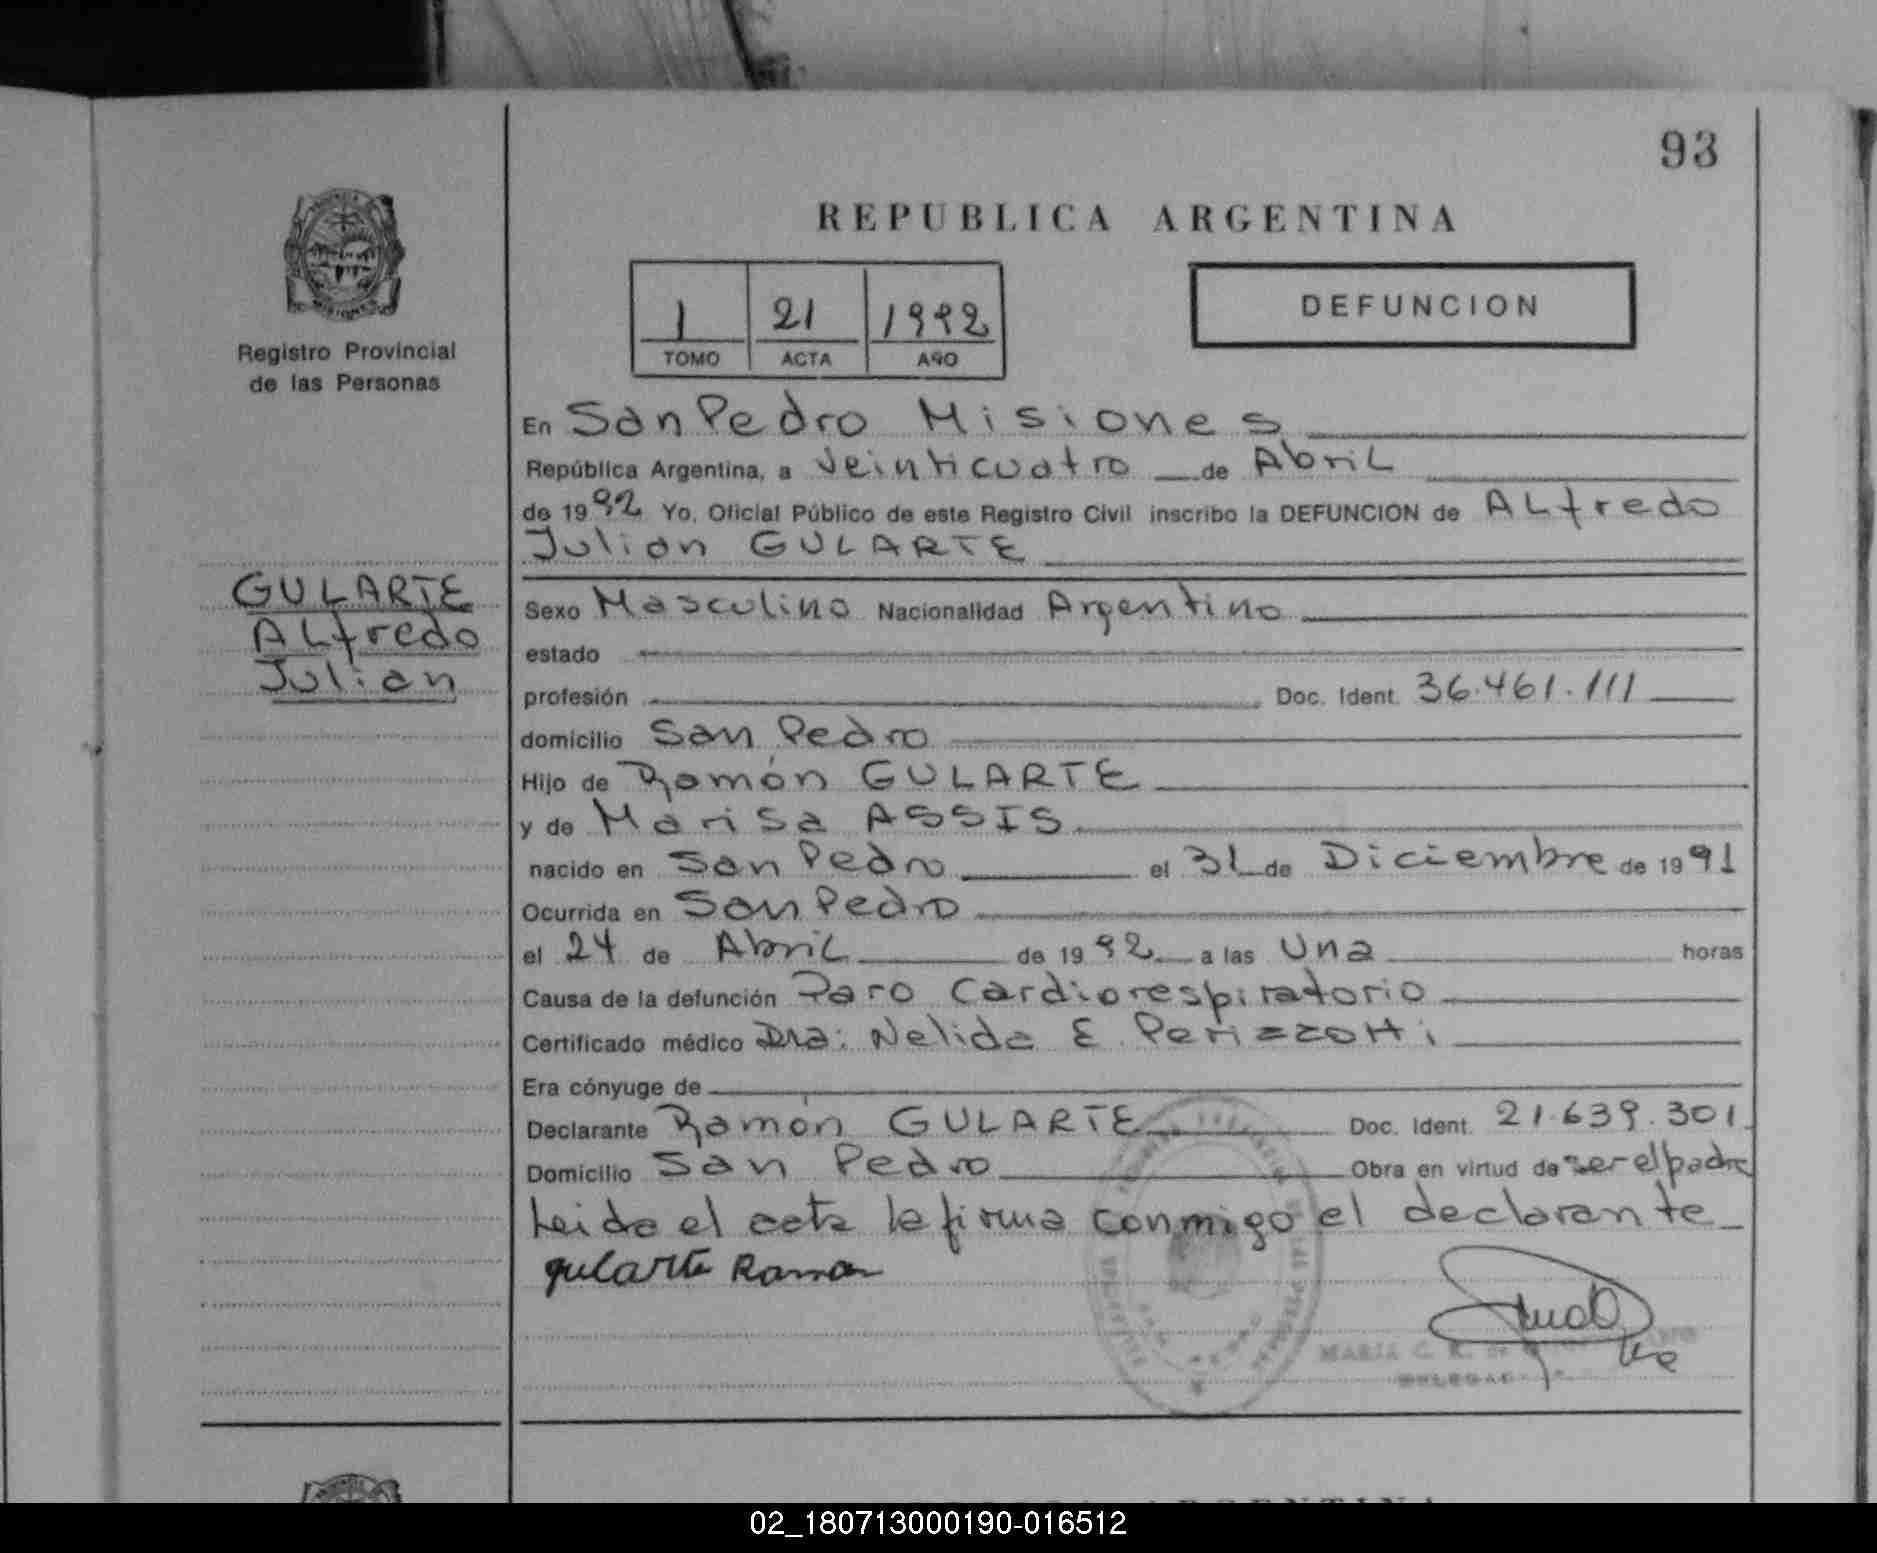 93
REPUBLICA ARGENTINA
1 21 1992
TOMO ACTA AÑO
DEFUNCION
Registro Provincial
de las Personas
GULARTE
ALfredo
Julian
En San Pedro Misiones
República Argentina, a veinticuatro de Abril
de 1992 Yo, Oficial Público de este Registro Civil inscribo la DEFUNCION de ALfredo
Julian GULARTE
Sexo Masculino Nacionalidad Argentino
estado
profesión Doc. Ident. 36.461.111
domicilio San Pedro
Hijo de Ramón GULARTE
y de Marisa ASSIS
nacido en San Pedro el 31 de Diciembre de 1991
Ocurrida en San Pedro
el 24 de Abril de 1992 a las Una horas
Causa de la defunción Paro Cardiorespiratorio
Certificado médico Dra: Nelida E Perizzotti
Era cónyuge de
Declarante Ramón GULARTE Doc. Ident. 21.639.301
Domicilio San Pedro Obra en virtud de ser el padre
Leida el acta la firma conmigo el declarante
gularte Ramon
MARIA C. R. de
02_180713000190-016512